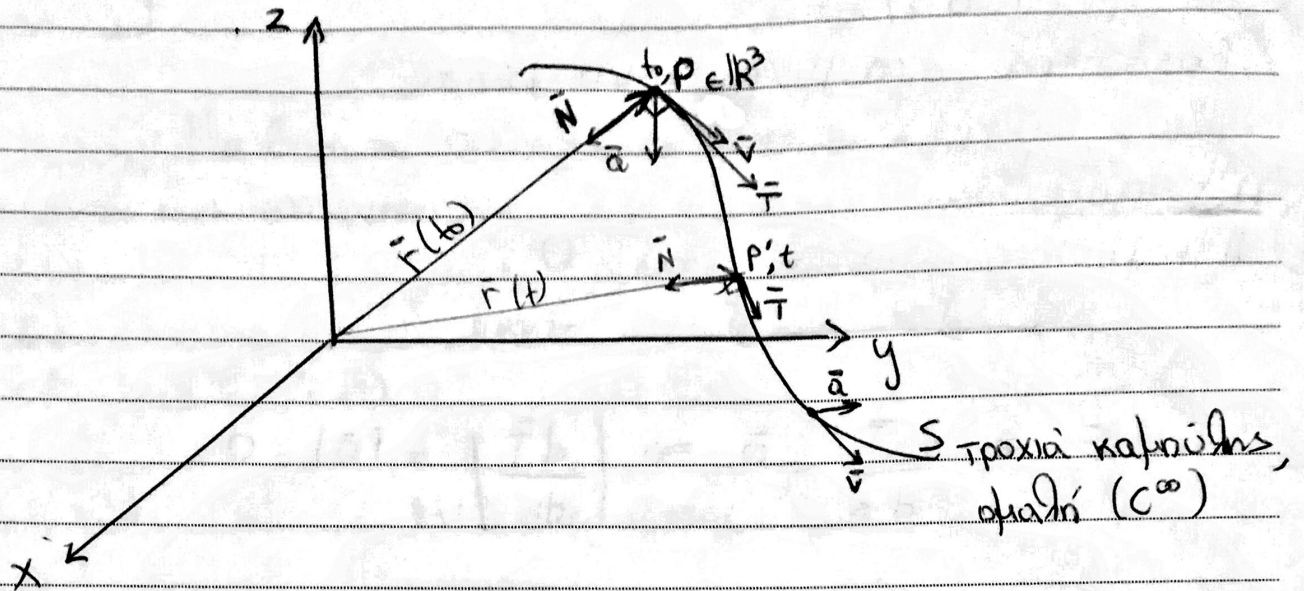 z
t₀, P ∈ ℝ³
N̄
ā
v̄
T̄
r̄(t₀)
N̄
P', t
r̄(t)
T̄
y
ā
S τροχιά καμπύλης,
v̄
ομαλή (C^∞)
x